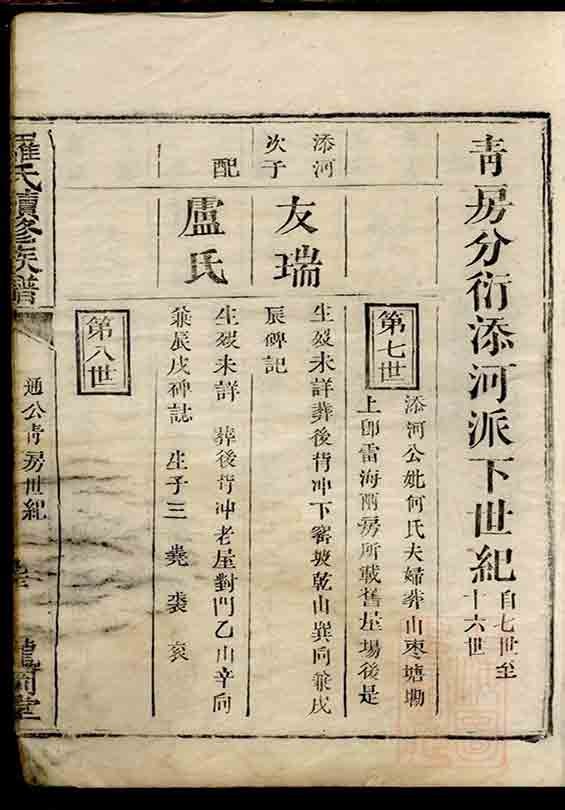 青房分衍添河派下世紀
自七世至
十六世
第七世
添河公妣何氏夫婦葬山棗塘坳
上即雷海兩房所載舊屋場後是
添河
次子
友瑞
生歿未詳葬後背冲下窰坡乾山巽向兼戌
辰碑記
配
盧氏
生歿未詳 葬後背冲老屋對門乙山辛向
兼辰戌碑誌 生子三 堯 裘 袞
第八世
羅氏續修族譜
通公青房世紀